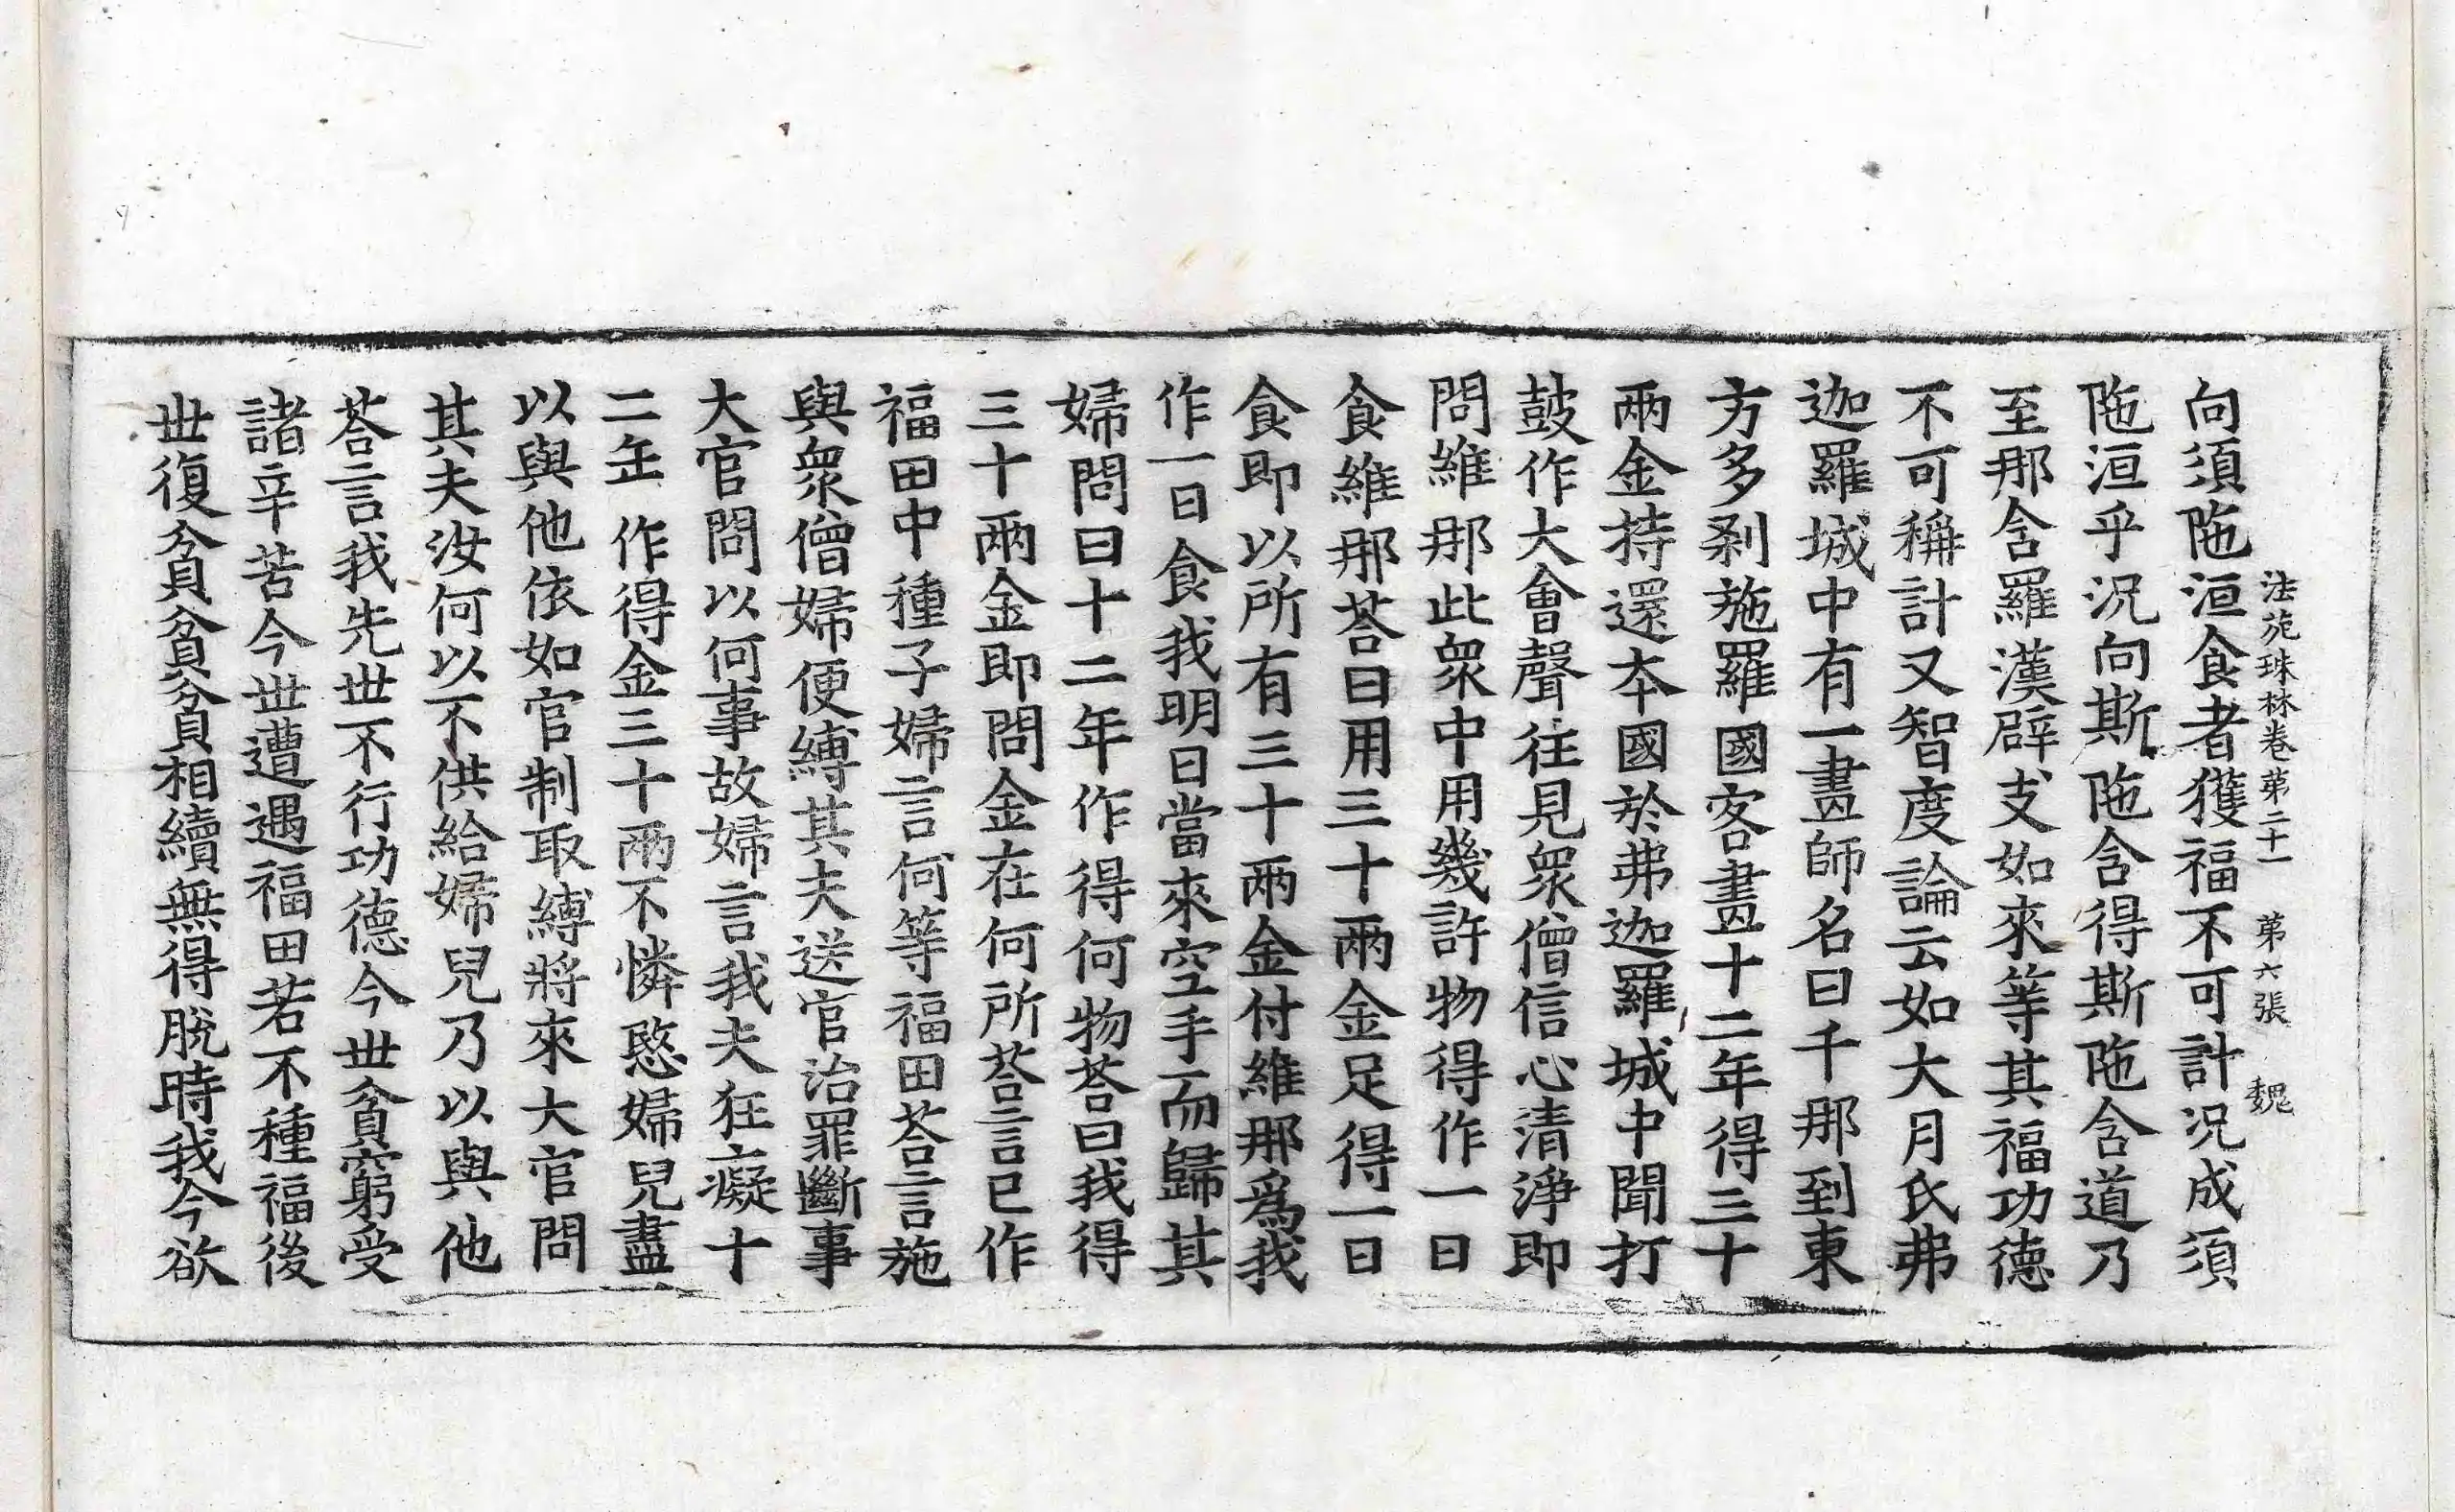 法苑珠林卷苐二十一 苐六張 魏
向須陁洹食者獲福不可計况成須
陁洹乎况向斯陁含得斯陁含道乃
至那含羅漢辟支如來等其福功德
不可稱計又智度論云如大月氏弗
迦羅城中有一畫師名曰千那到東
方多剎施羅國客畫十二年得三十
兩金持還本國於弗迦羅城中聞打
鼓作大會聲往見衆僧信心清淨即
問維那此衆中用幾許物得作一日
食維那荅曰用三十兩金足得一日
食即以所有三十兩金付維那爲我
作一日食我明日當來空手而歸其
婦問曰十二年作得何物荅曰我得
三十兩金即問金在何所荅言已作
福田中種子婦言何等福田荅言施
與衆僧婦便縛其夫送官治罪斷事
大官問以何事故婦言我夫狂癡十
二年作得金三十兩不憐愍婦兒盡
以與他依如官制取縛將來大官問
其夫汝何以不供給婦兒乃以與他
荅言我先世不行功德今世貧窮受
諸辛苦今世遭遇福田若不種福後
世復貧貧貧相續無得脫時我今欲